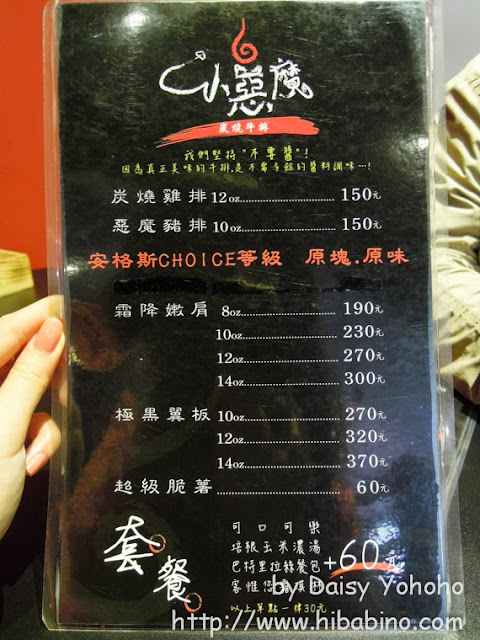 小惡魔
炭燒牛排
我們堅持"不要醬"!
因為真正美味的牛排.是不需多餘的醬料調味…!
炭燒雞排12oz. 150元
惡魔豬排10oz. 150元
安格斯CHOICE等級 原塊.原味
霜降嫩肩 8oz 190元
10oz 230元
12oz 270元
14oz 300元
極黑翼板 10oz 270元
12oz 320元
14oz 370元
超級脆薯 60元
套餐
可口可樂
培根玉米濃湯
巴特里拉餐包
+60元
以上單點一律30元
by Daisy Yohoho
http://www.hibabino.com